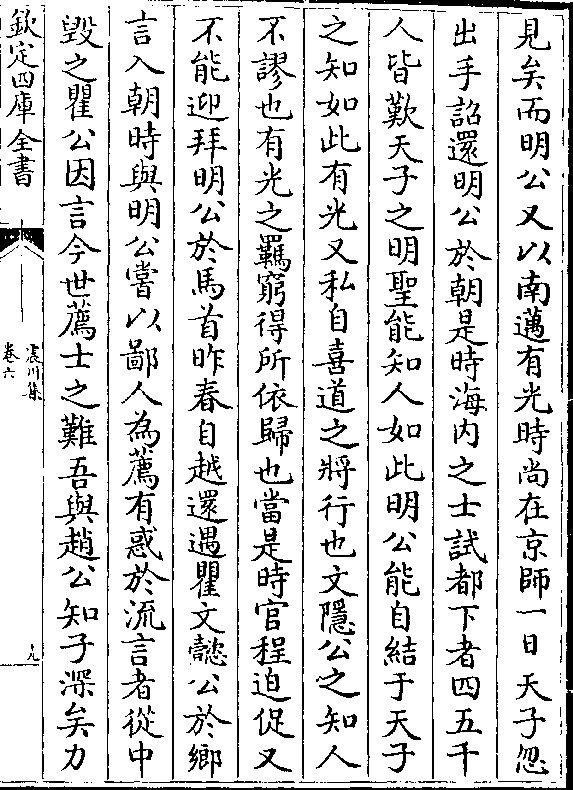 見矣而明公又以南邁有光時尚在京師一日天子忽
出手詔還明公於朝是時海内之士試都下者四五千
人皆歎天子之明聖能知人如此明公能自結于天子
之知如此有光又私自喜道之將行也文隱公之知人
不謬也有光之羈窮得所依歸也當是時官程迫促又
不能迎拜明公於馬首昨春自越還遇瞿文懿公於鄉
言入朝時與明公嘗以鄙人為薦有惑於流言者從中
毀之瞿公因言今世薦士之難吾與趙公知子深矣力
欽定四庫全書
震川集
卷六
十九